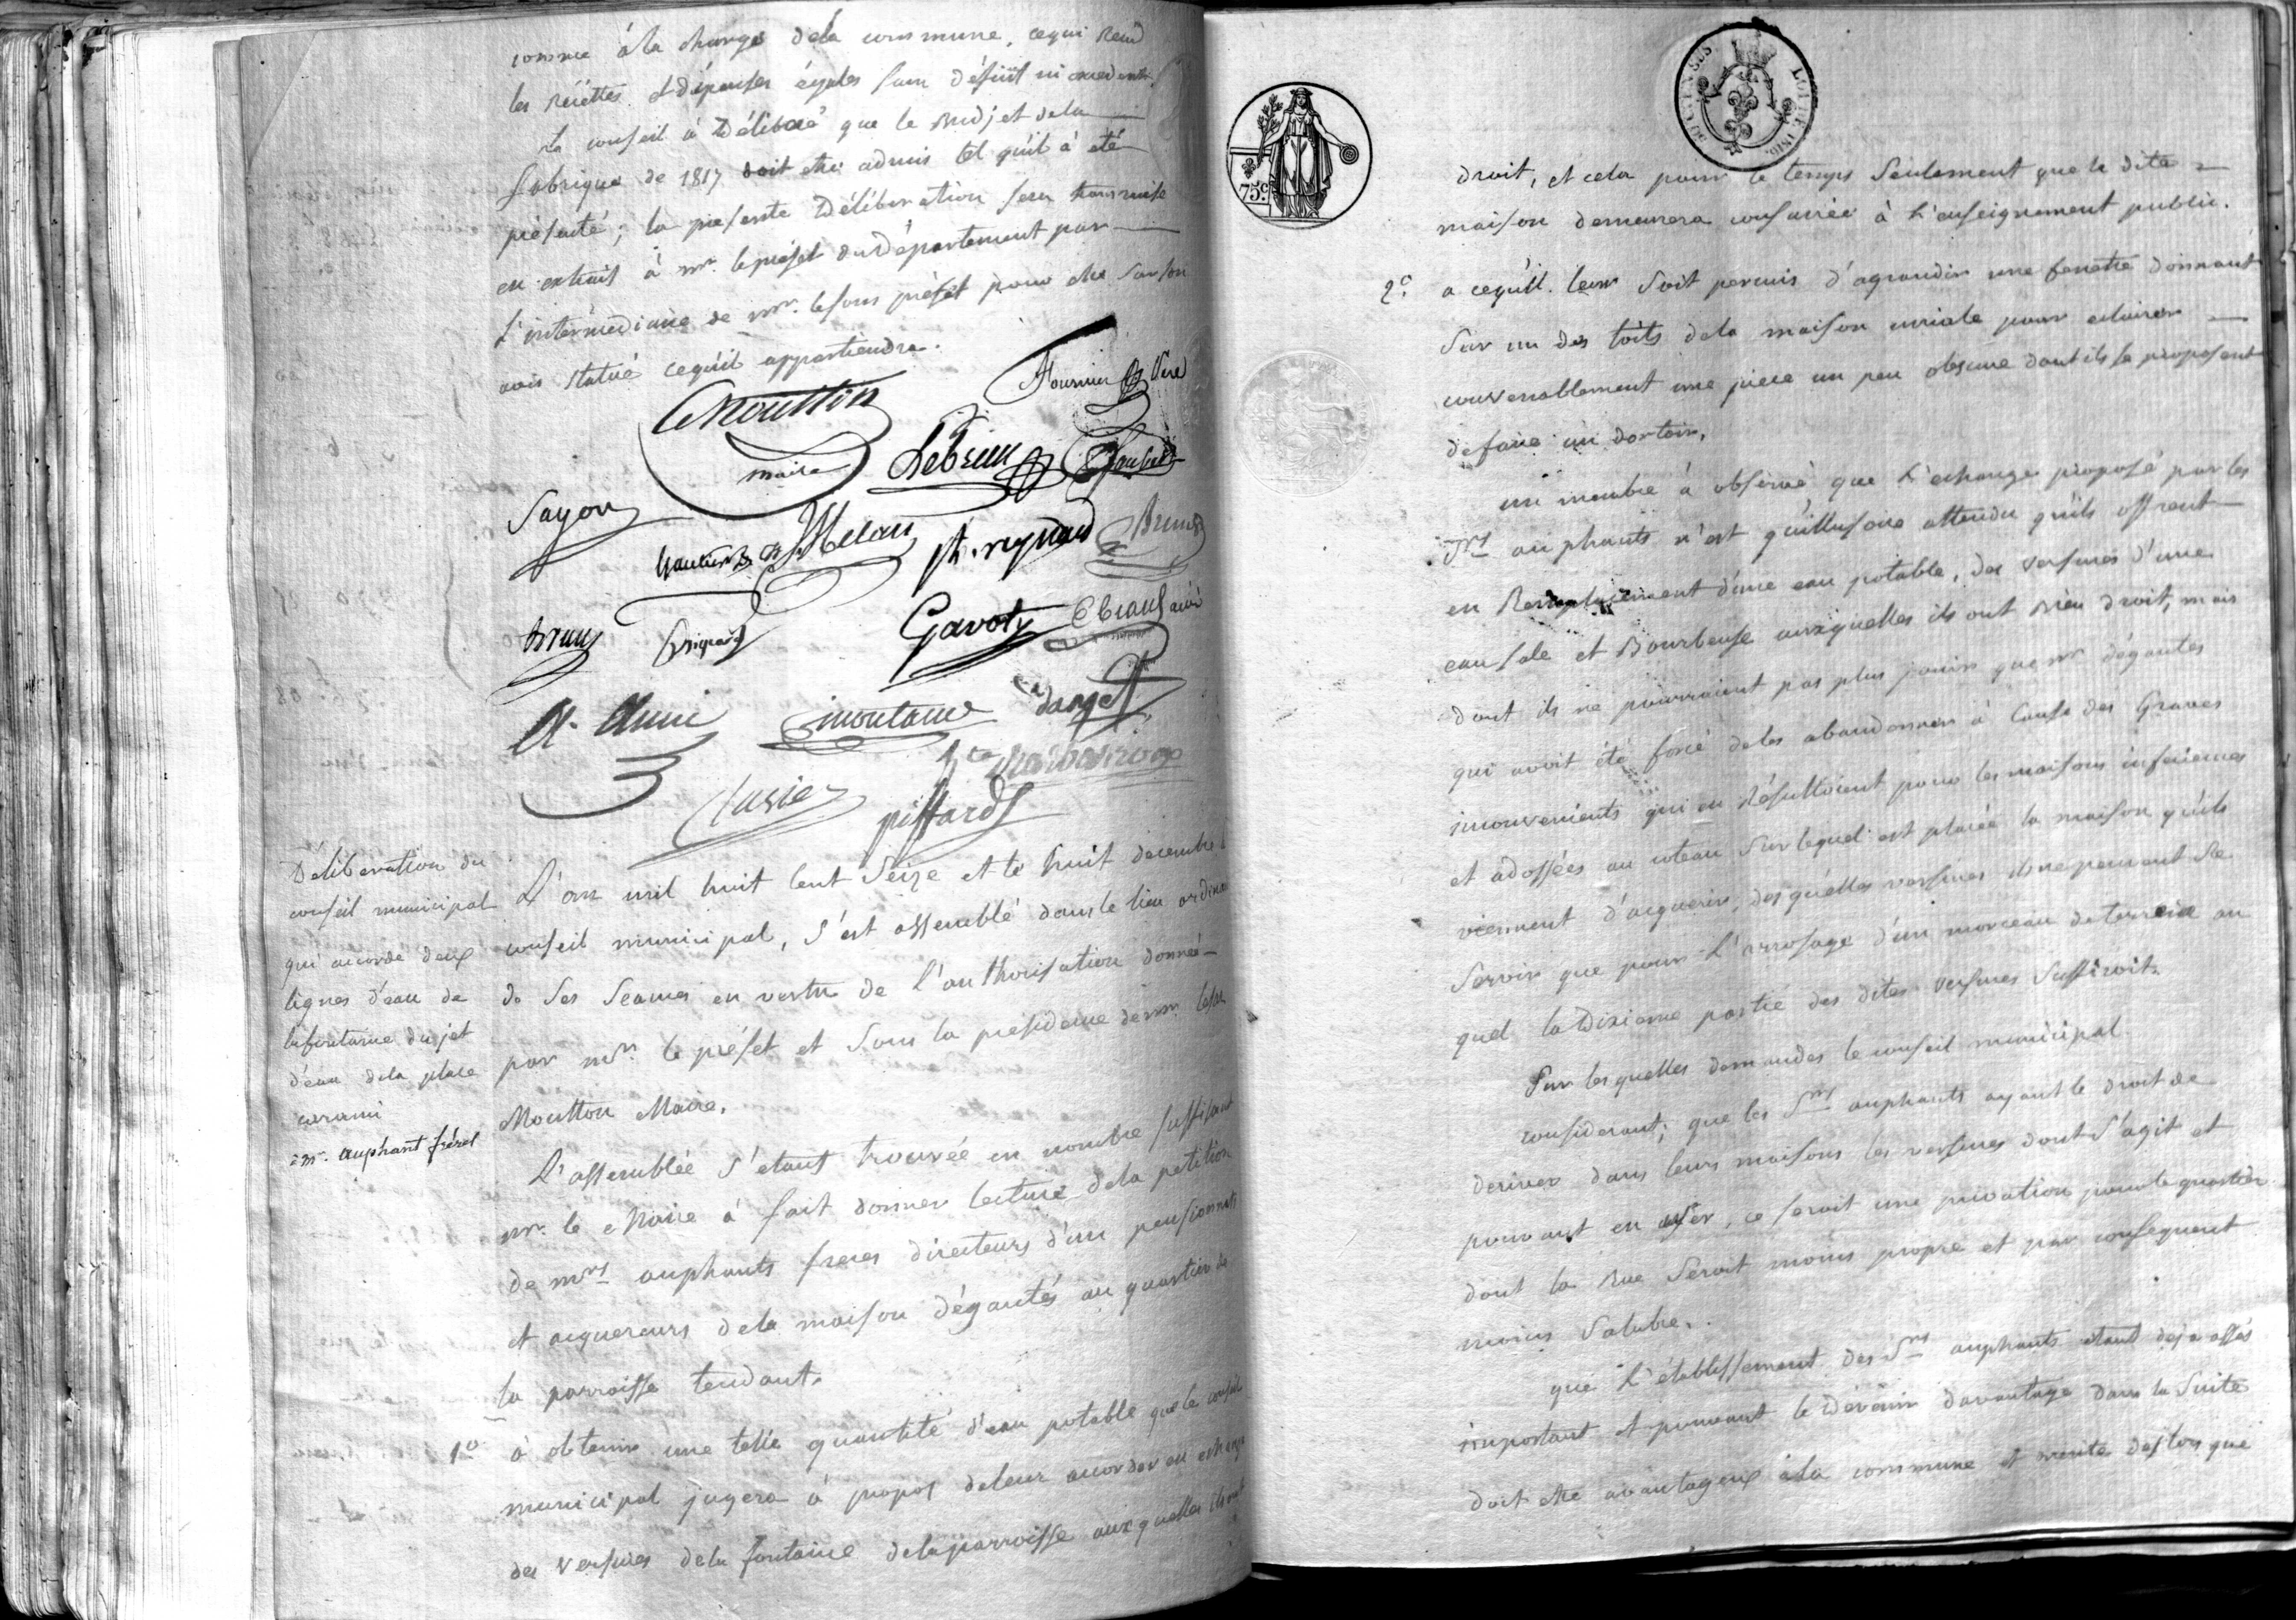 comme à la charge dela commune, cequi rend
les récettes et dépenses égales sans déficit ni excedent.
Le conseil à Délibéré que le Budjet dela
fabrique de 1817 doit etre admis tel qu'il à été
présenté; la présente Délibération sera transmise
en extrait à mr. le préfet du Département par
l'intermédiaire de mr. le sous préfet pour etre sur son
avis statué cequil appartiendra.
Moutton
maire
Fournier
Lebrun
Sayou
ph. reynaud
Brun
brun
Gavoty
A. Ami
montane
Clusier
piffard
Déliberation du
conseil municipal
qui accorde deux
lignes d'eau de
la fontaine du jet
d'eau dela place
carami
à mr. auphant frères
L'an mil huit cent Seize et le huit decembre le
conseil municipal, s'est assemblé dans le lieu ordinaire
de Ses Seances en vertu de l'authorisation donnée
par mr. le préfet et Sous la présidence de mr.
Moutton Maire.
L'assemblée s'etant trouvée en nombre suffisant
mr. le Maire à fait donner lecture dela petition
de mrs auphants freres directeurs d'un pensionnat
et acquereurs dela maison dégantés au quartier de
la parroisse tendant.
1o à obtenir une telle quantité d'eau potable que le conseil
municipal jugera à propos deleur accorder en echange
des versures dela fontaine delaparroisse auxquelles ils ont
BOURGES
75c.
droit, et cela pour le temps Seulement que la dite
maison demeurera consacrée à l'enseignement public.
2e. a cequ'il leur Soit permis d'agrandir une fenetre donnant
Sur un des toits dela maison curiale pour eclairer
convenablement une piece un peu obscure dont ils se proposent
defaire un dortoir.
un membre à observé que l'echange proposé par les
Srs auphants n'est qu'illusoire attendu qu'ils offrent
en Remplacement d'une eau potable, des versures d'une
eau sale et Bourbeuse auxquelles ils ont bien droit, mais
dont ils ne pourraient pas plus jouir que mr dégantes
qui avoit été forcé deles abandonner à Cause des Graves
inconvenients qui en Résultoient pour les maisons inferieures
et adossées au coteau sur lequel est placée la maison qu'ils
viennent d'acquerir, desquelles versures ils ne peuvent se
Servir que pour l'arrosage d'un morceau de terrein au
quel la Dixieme partie des dites versures Suffiroit.
Sur lesquelles demandes le conseil municipal
considerant; que les Srs auphants ayant le droit de
deriver dans leurs maisons les versures dont s'agit et
pouvant en user, ce seroit une privation pour le quartier
dont la Rue Seroit moins propre et par consequent
moins Salubre.
que l'établissement des Srs auphants etant deja assés
important et pouvant le Devenir davantage dans la Suite
doit etre avantageux à la commune et merite deslors que